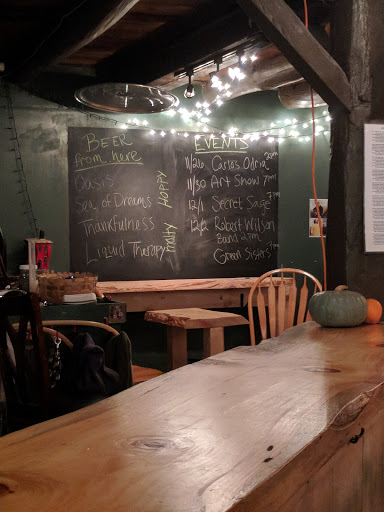 BEER
from here
Oasis
Sea of Dreams
Thankfulness
Liquid Therapy
HOPPY
malty
EVENTS
11/26 Carlos Odria 2pm
11/30 Art Show 7pm
12/1 Secret Sage 7pm
12/2 Robert Wilson
Band 2pm
Green Sisters 7pm